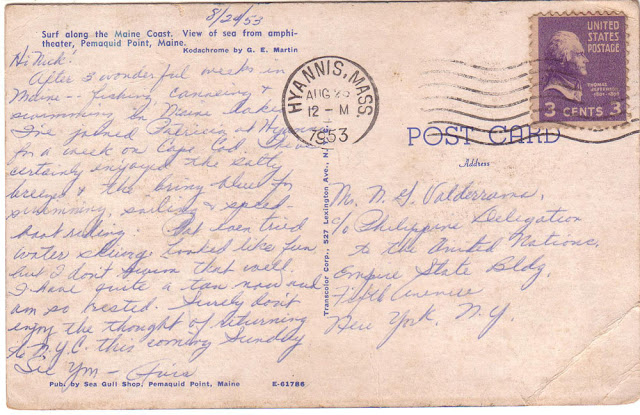 8/29/53
Surf along the Maine Coast. View of sea from amphi-
theater, Pemaquid Point, Maine.
Kodachrome by G. E. Martin
Hi Nick!
After 3 wonderful weeks in
Maine -- fishing, canoeing &
swimming in Maine lakes
I've joined Patricia at Hyannis
for a week on Cape Cod.
certainly enjoyed the salty
breezes & the briny blue for
swimming, sailing & speed
boat riding. Pat even tried
water skiing. Looked like fun
but I don't swim that well.
I have quite a tan now and
am so rested. Surely don't
enjoy the thought of returning
to N.Y.C. this coming Sunday
See Ym -
Pub. by Sea Gull Shop, Pemaquid Point, Maine
E-61786
Transcolor Corp., 527 Lexington Ave., N.
HYANNIS, MASS.
AUG
12 - M
1953
UNITED
STATES
POSTAGE
THOMAS
JEFFERSON
1801-1809
3 CENTS 3
POST CARD
Address
Mr. N. G. Valderrama,
c/o Philippine Delegation
to the United Nations,
Empire State Bldg,
Fifth Avenue
New York, N.Y.